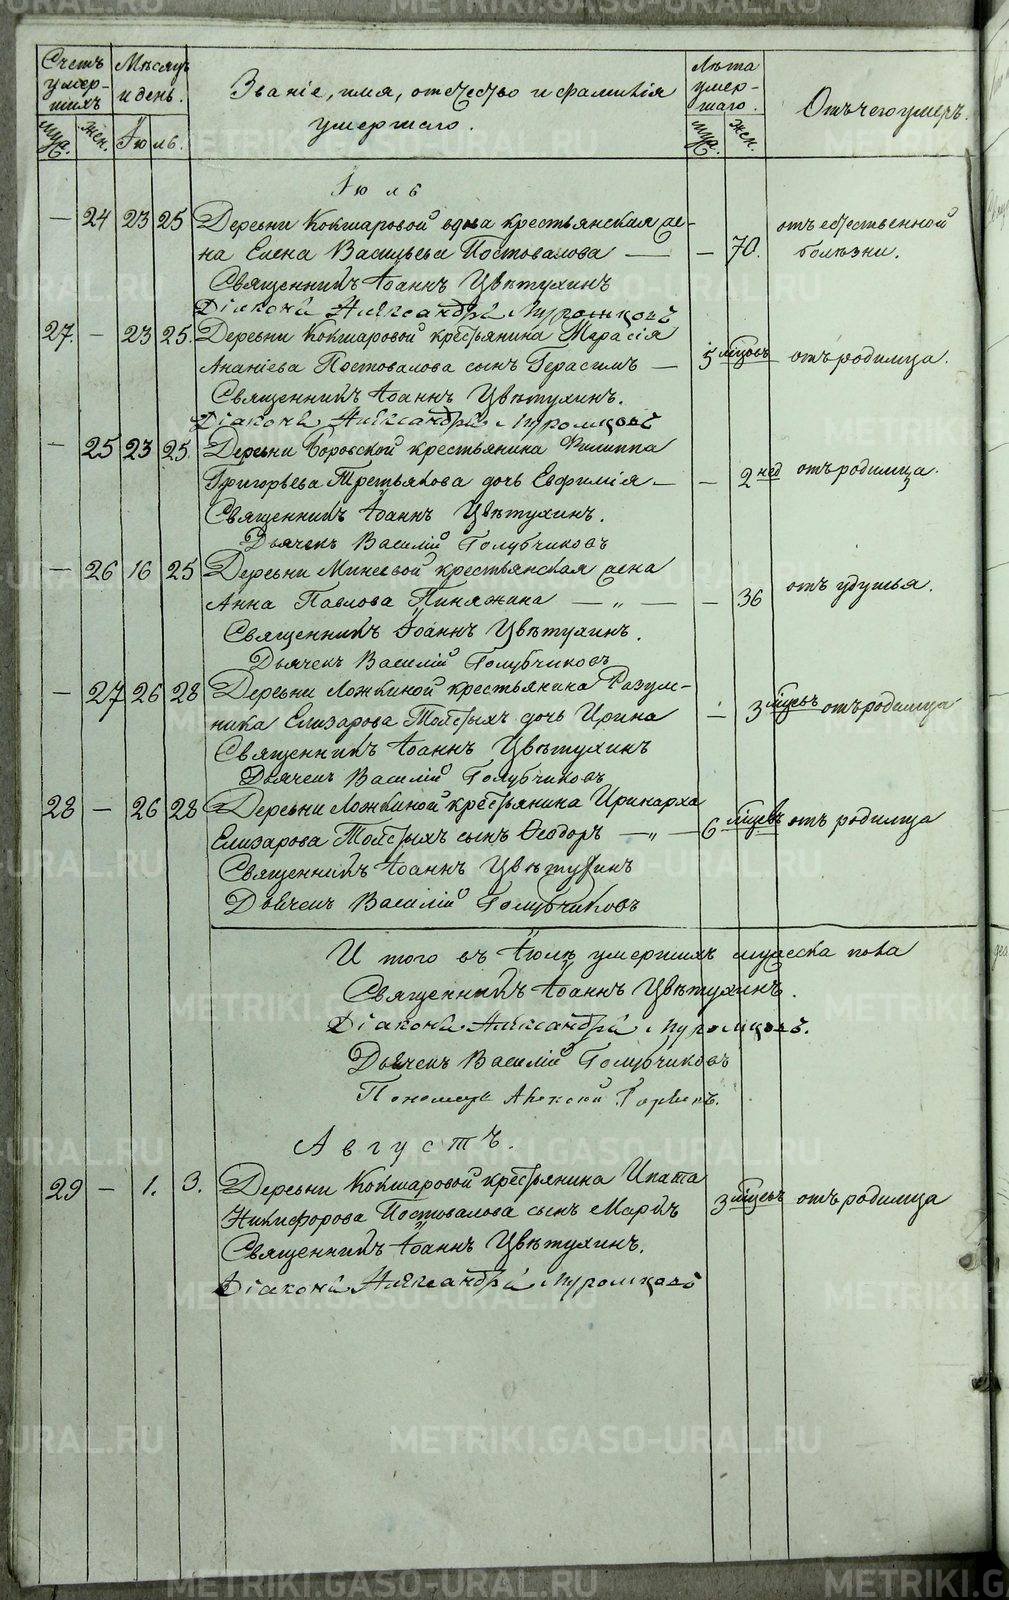 Счетъ умер-шихъ
Мѣсяцъ и день.
Званіе, имя, отечество и фамилія
умершаго.
Лѣта умер-шаго.
Отъ чего умеръ.
муж. жен. Ію ль. муж. жен.
Іюль
— 24 23 25 Деревни Кокшаровой вдова крестьянская же-
на Елена Васильева Постовалова — — 70. отъ естественной
болѣзни.
Священникъ Іоаннъ Цвѣтухинъ
Діаконъ Александръ
27. — 23 25. Деревни Кокшаровой крестьянина
Ананіева Постовалова сынъ Герасимъ — 5 мѣсяцовъ отъ родимца.
Священникъ Іоаннъ Цвѣтухинъ.
Діаконъ Александръ
— 25 23 25 Деревни Боровской крестьянина Филиппа
Григорьева Третьякова дочь Евфимія — — 2 нед отъ родимца.
Священникъ Іоаннъ Цвѣтухинъ.
Дьячекъ Василій Голубчиковъ
— 26 16 25 Деревни Минеевой крестьянская жена
Анна Павлова Пиняжина — „ — — 36 отъ удушья.
Священникъ Іоаннъ Цвѣтухинъ.
Дьячекъ Василій Голубчиковъ
— 27 26 28 Деревни Ложкиной крестьянина Разум-
ника Елизарова Толстыхъ дочь Ирина — 3 мѣсяцъ отъ родимца
Священникъ Іоаннъ Цвѣтухинъ
Дьячекъ Василій Голубчиковъ
28 — 26 28 Деревни Ложкиной крестьянина Иринарха
Елизарова Толстыхъ сынъ Ѳеодоръ — „ — 6 мѣсяцевъ отъ родимца
Священникъ Іоаннъ Цвѣтухинъ
Дьячекъ Василій Голубчиковъ
И того въ Іюлѣ умершихъ мужеска пола
Священникъ Іоаннъ Цвѣтухинъ.
Діаконъ Александръ
Дьячекъ Василій Голубчиковъ
Пономарь Алексѣй
Августъ.
29 — 1. 3. Деревни Кокшаровой крестьянина Ипата
Никифорова Постовалова сынъ Маркъ 3 мѣсяцъ отъ родимца
Священникъ Іоаннъ Цвѣтухинъ.
Діаконъ Александръ
METRIKI.GASO-URAL.RU